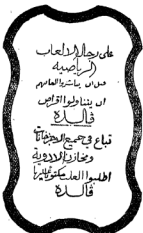 على رجال الالعاب
الرياضية
قبل ان يباشروا العابهم
ان يتناولوا اقراص
ڤالدا
تباع في جميع الاجزاخانات
ومخازن الادوية
اطلبوا العلب
ڤالدا